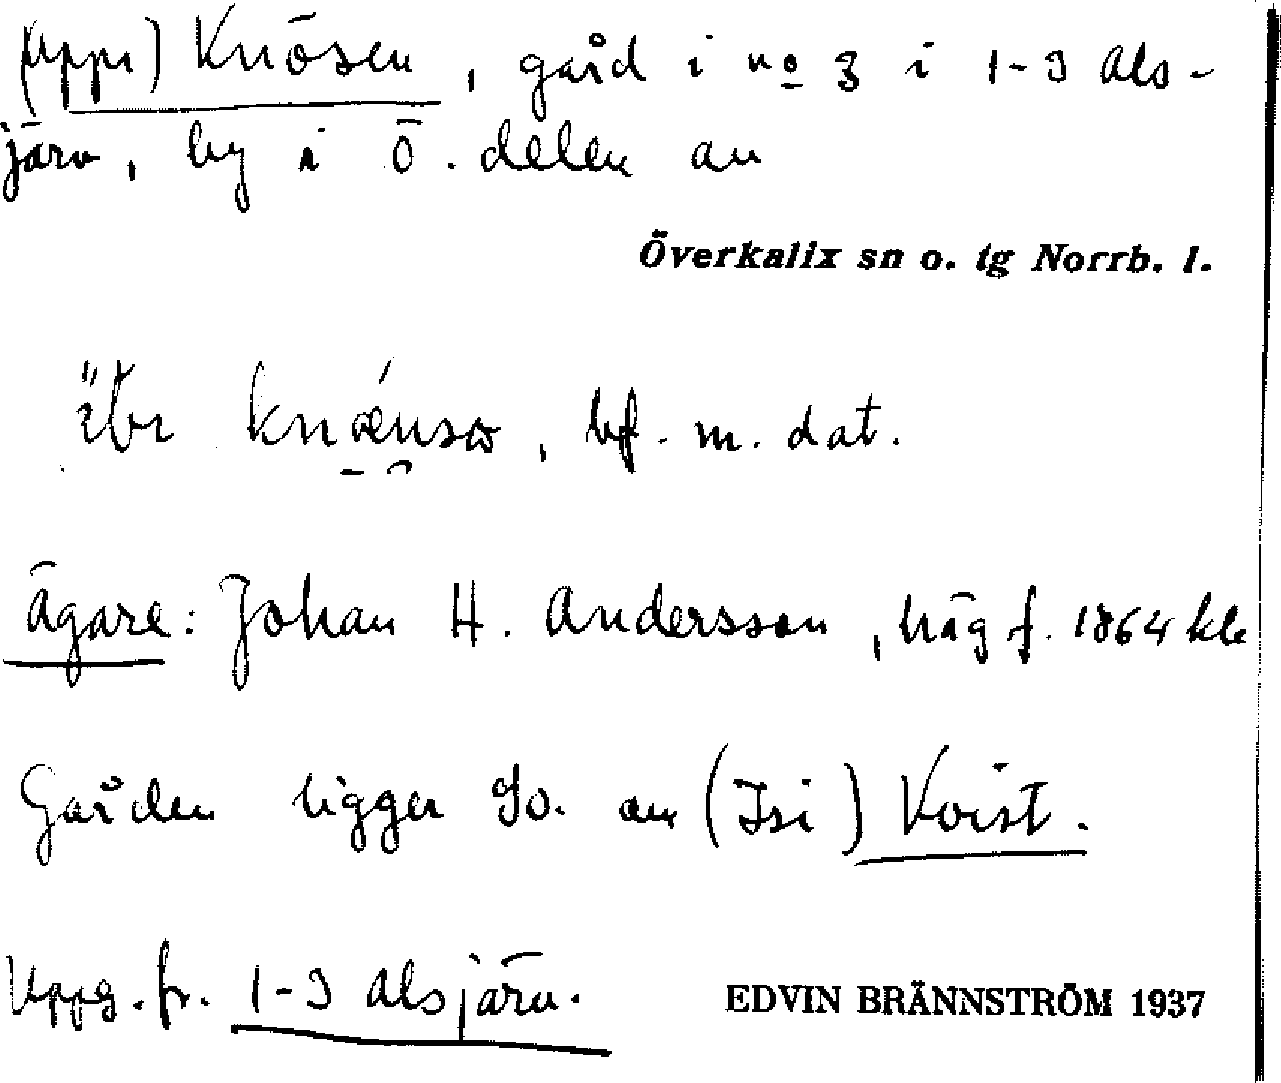 (uppi) Knösen, gård i no 3 i 1-3 Als-
järv, by i Ö. delen av
Överkalix sn o. tg Norrb. l.
bf. m. dat.
Ägare: Johan H. Andersson, häg f. 1864
Gården ligger So. av (Isi) Kvist.
Uppg. fr. 1-3 Alsjärv.
EDVIN BRÄNNSTRÖM 1937